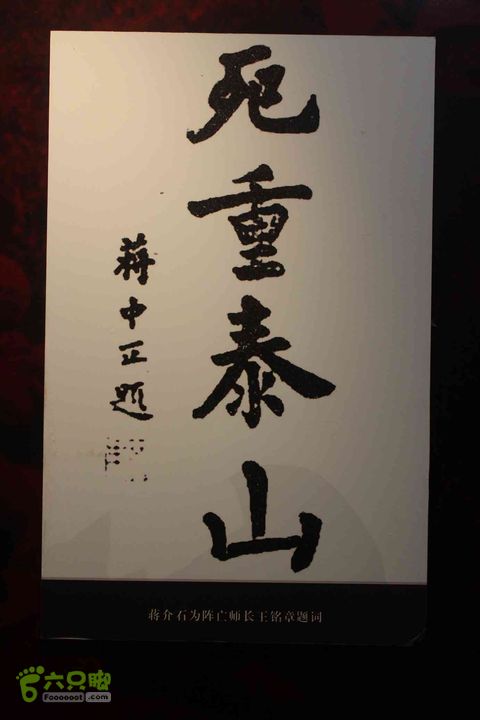 死重泰山
蒋中正题
蒋介石为阵亡师长王铭章题词
六只脚
Foooooot.com